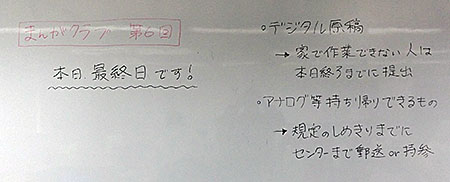 まんがクラブ 第6回
本日、最終日です!
○デジタル原稿
→ 家で作業できない人は
本日終了までに提出
○アナログ等持ち帰りできるもの
→ 規定のしめきりまでに
センターまで郵送or持参